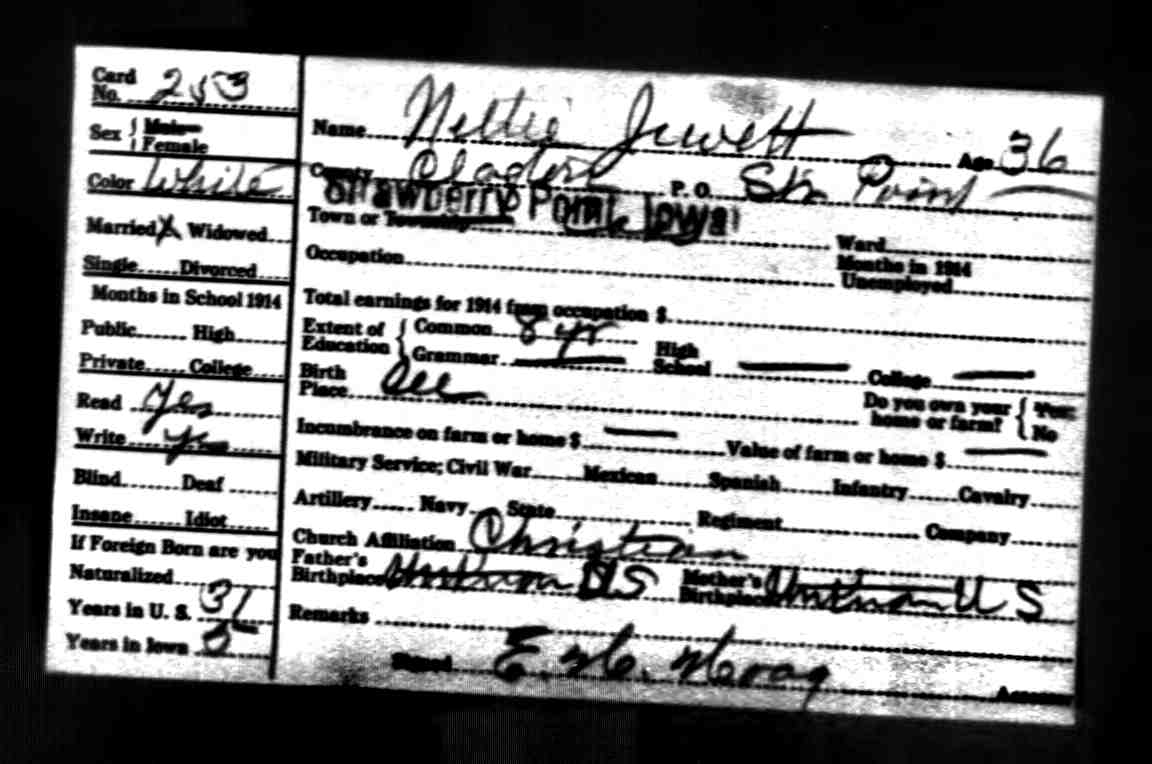 Card No. 253
Sex { Male Female
Color White
Married X Widowed
Single Divorced
Months in School 1914
Public High
Private College
Read Yes
Write Yes
Blind Deaf
Insane Idiot
If Foreign Born are you
Naturalized
Years in U. S.
Years in Iowa
Name Nettie Jewett Age 36
County P. O. Str Point
Strawberry Point, Iowa
Town or Township Ward
Occupation Months in 1914 Unemployed
Total earnings for 1914 from occupation $
Extent of Education { Common 8 yr
Grammar — High School — College —
Birth Place Do you own your home or farm? { Yes No
Incumbrance on farm or home $ — Value of farm or home $ —
Military Service; Civil War Mexican Spanish Infantry Cavalry
Artillery Navy State Regiment Company
Church Affiliation Christian
Father's Birthplace Unknown U S Mother's Birthplace Unknown U S
Remarks
Signed E. Assessor